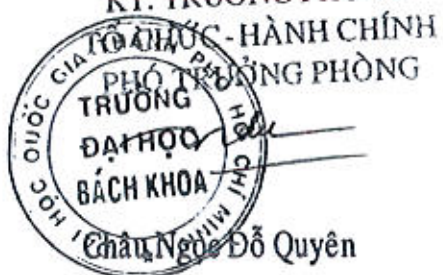 KT. TRƯỞNG PHÒNG
TỔ CHỨC - HÀNH CHÍNH
PHÓ TRƯỞNG PHÒNG
ĐẠI HỌC QUỐC GIA THÀNH PHỐ HỒ CHÍ MINH
TRƯỜNG
ĐẠI HỌC
BÁCH KHOA
Châu Ngọc Đỗ Quyên